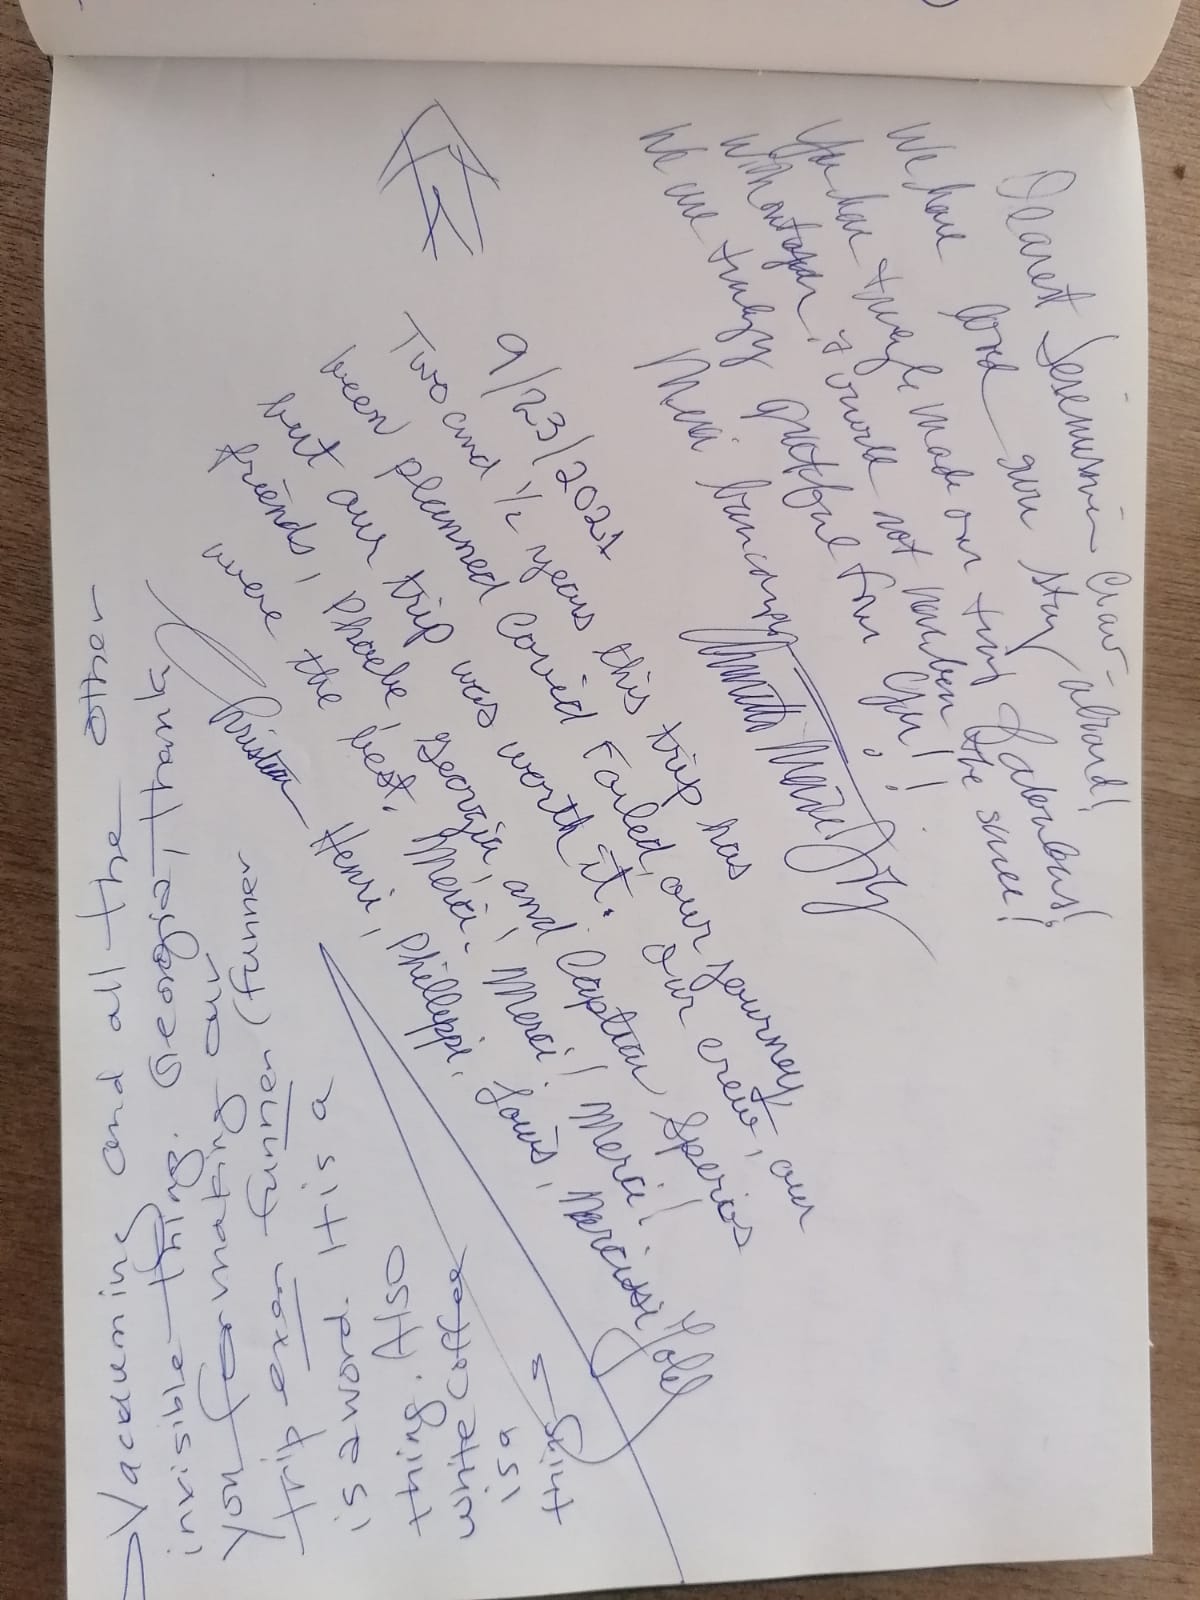 Dearest
We have loved our stay aboard!
You have truly made our trip fabulous!
Without you, it would not have been the same!
We are truly grateful for you!
Merci
9/23/2021
Two and 1/2 years this trip has
been planned Covid Foiled our journey,
but our trip was worth it. Our crew, our
friends, Phoebe, Georgia, and Captian Sperios
were the best. Merci. Merci! Merci!
Christian Henri, Phillippi, Louis,
Vacuuming and all the other
invisible things. Georgia, thank
you for making our
trip even funner (funner
is a word. It is a
thing. Also
white coffee
is a
thing